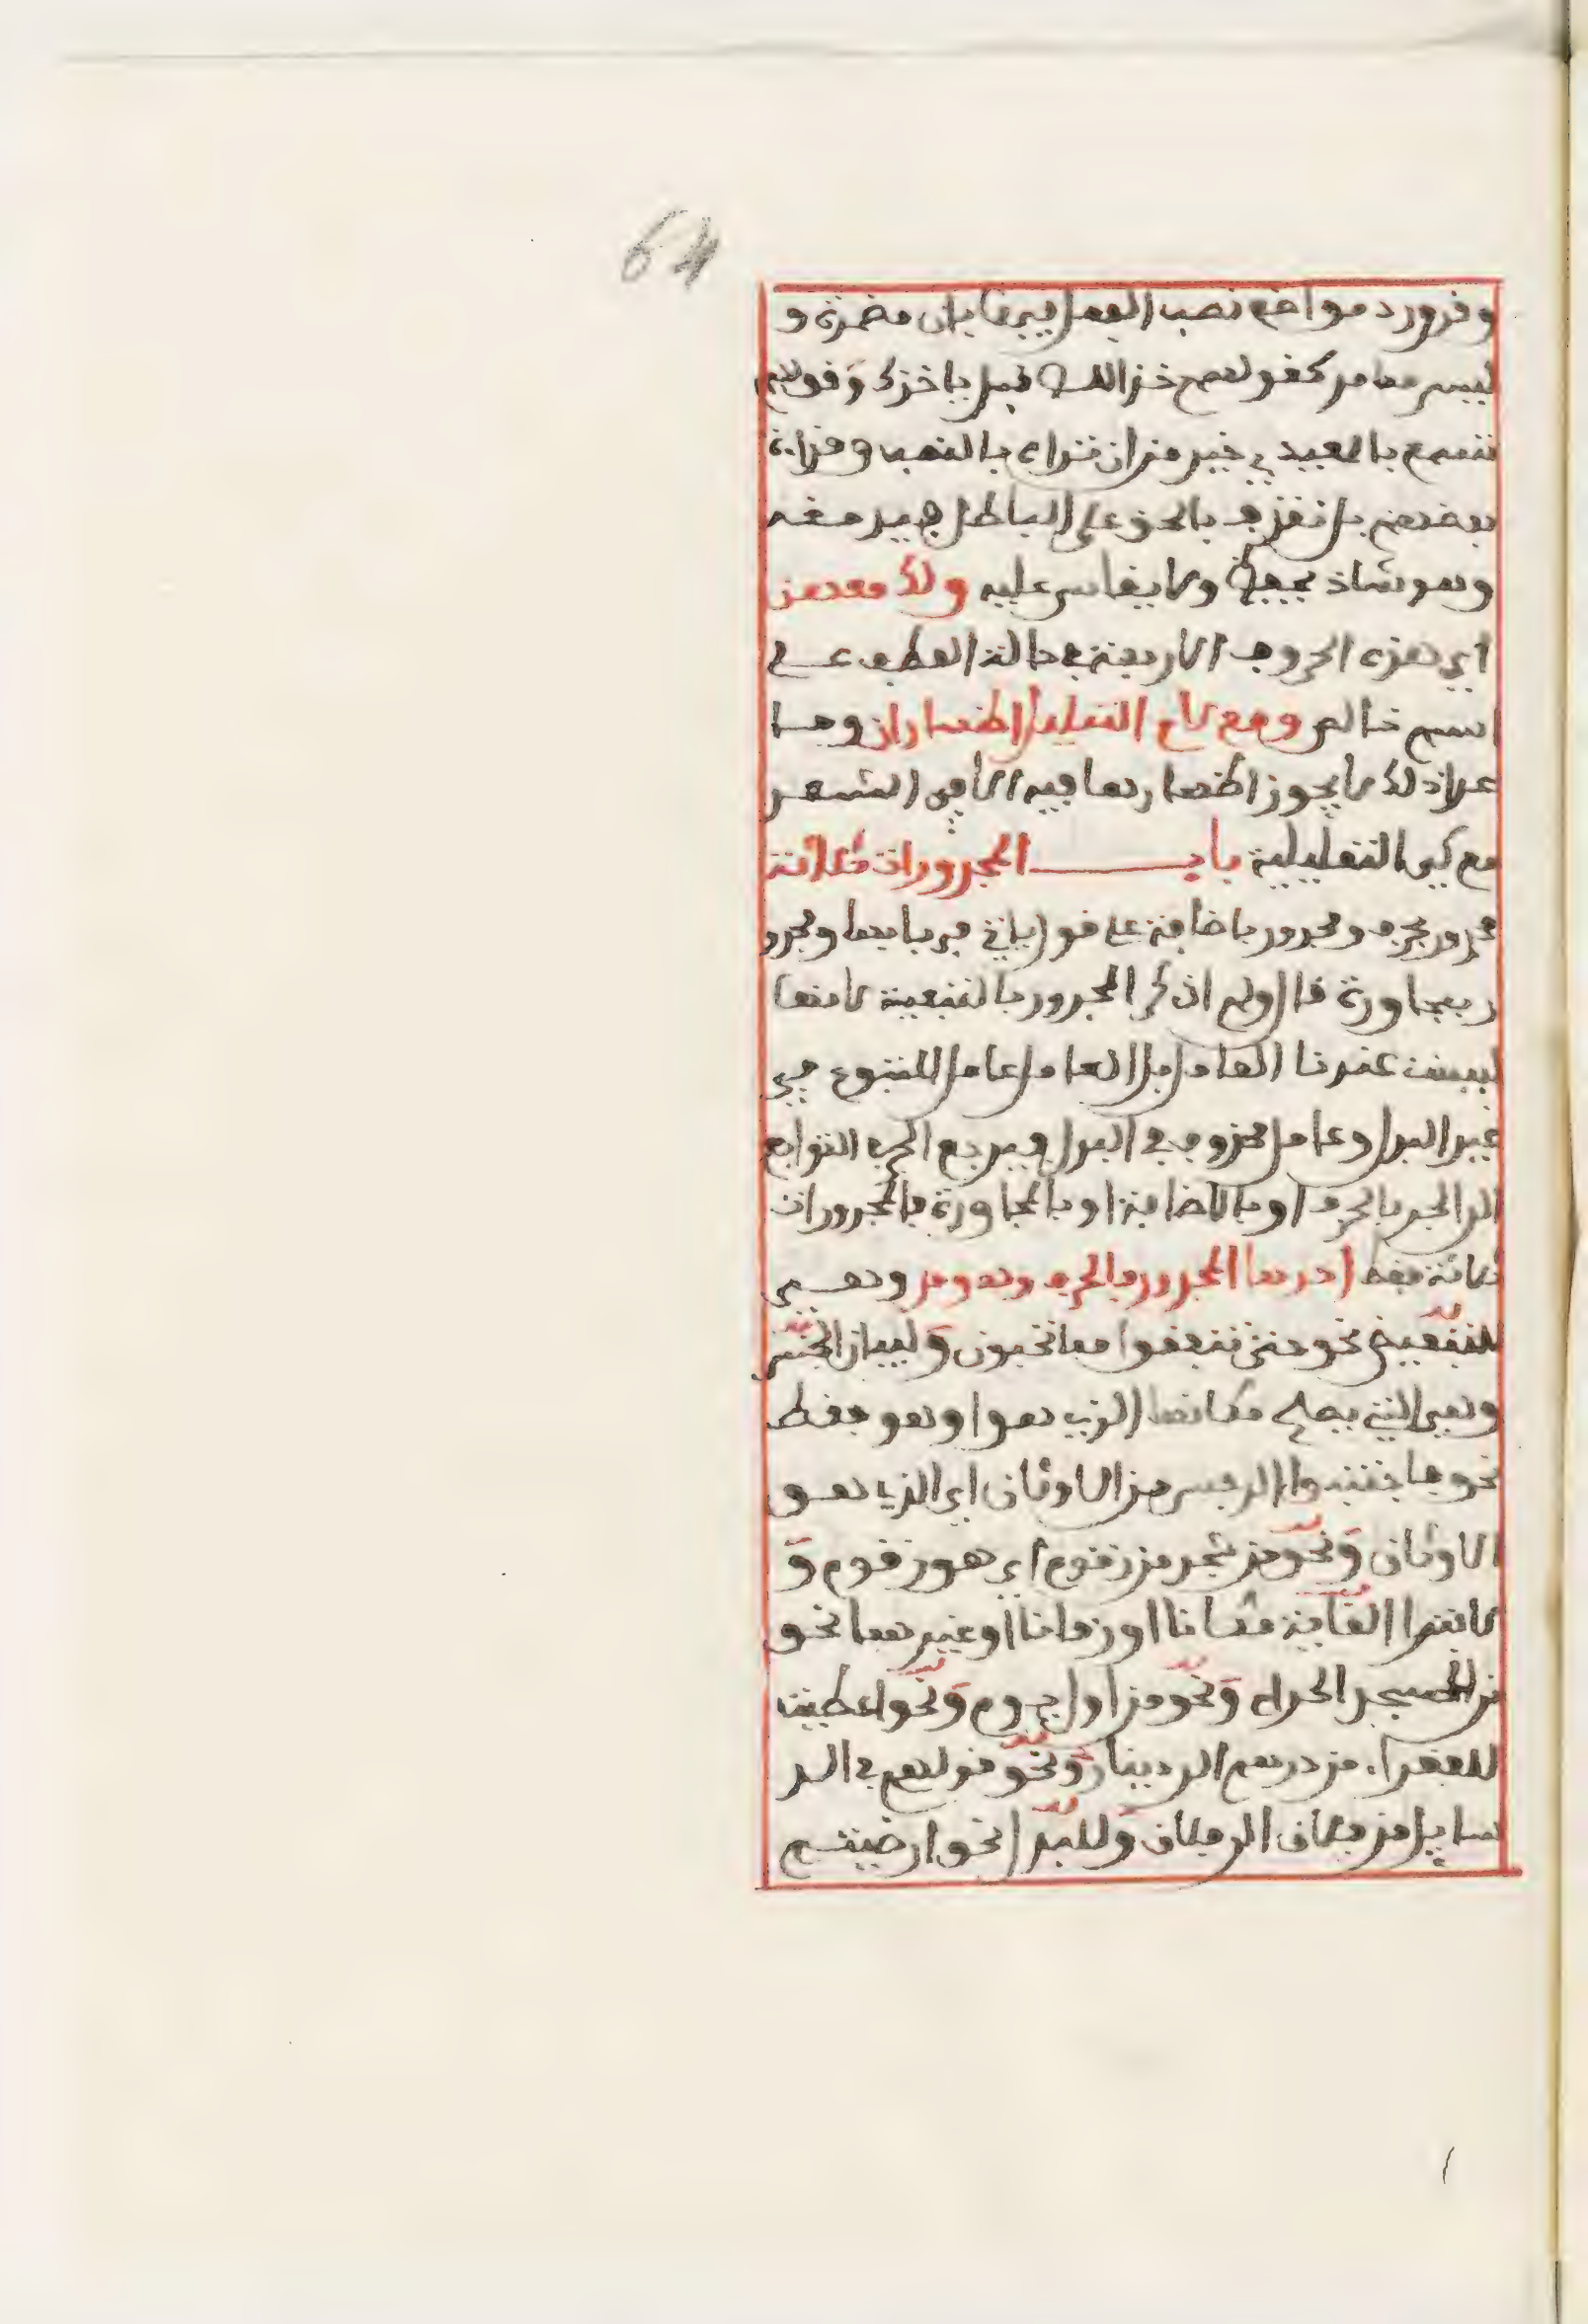 64
وقد ورد مواضع نصب الفعل فيها بان مضمرة و
ليس مما مر كقولهم خذ اللص قبل ياخذك وقولهم
تسمع بالمعيدي خير من ان تراه بالنصب وقراءة
بعضهم بل نقذف بالحق على الباطل فيدمغه
وهو شاذ يحفظ ولا يقاس عليه ولك معهن
اي هذه الحروف الاربعة في حالة العطف على
اسم خالص ومع لام التعليل اظهار ان وما
عدا ذلك لا يجوز اظهارها فيه الا في الشعر
مع كي التعليلية باب المجرورات ثلاثة
مجرور بحرف ومجرور باضافة على قول ياتي في بابها ومجرو
ر بمجاورة قال ولم اذكر المجرور بالتبعية لانها
ليست عندنا العامل بل العامل عامل المتبوع في
غير البدل وعامل محذوف في البدل فيرجع الجر في التوابع
الى الجر بالحرف او بالاضافة او بالمجاورة فالمجرورات
ثلاثة فقط احدها المجرور بالحرف وهو من وهي
للتبعيض نحو حتى تنفقوا مما تحبون ولبيان الجنس
وهي التي يصلح مكانها الذي هو او هو فقط
نحو فاجتنبوا الرجس من الاوثان اي الذي هو
الاوثان ونحو من شجر من زقوم اي هو زقوم و
لابتدا الغاية مكانا او زمانا او غيرهما نحو
من المسجد الحرام ونحو من اول يوم ونحو اعطيت
للفقراء من درهم الى دينار ونحو قولهم في الر
سايل من فلان الى فلان وللبدل نحو ارضيتم